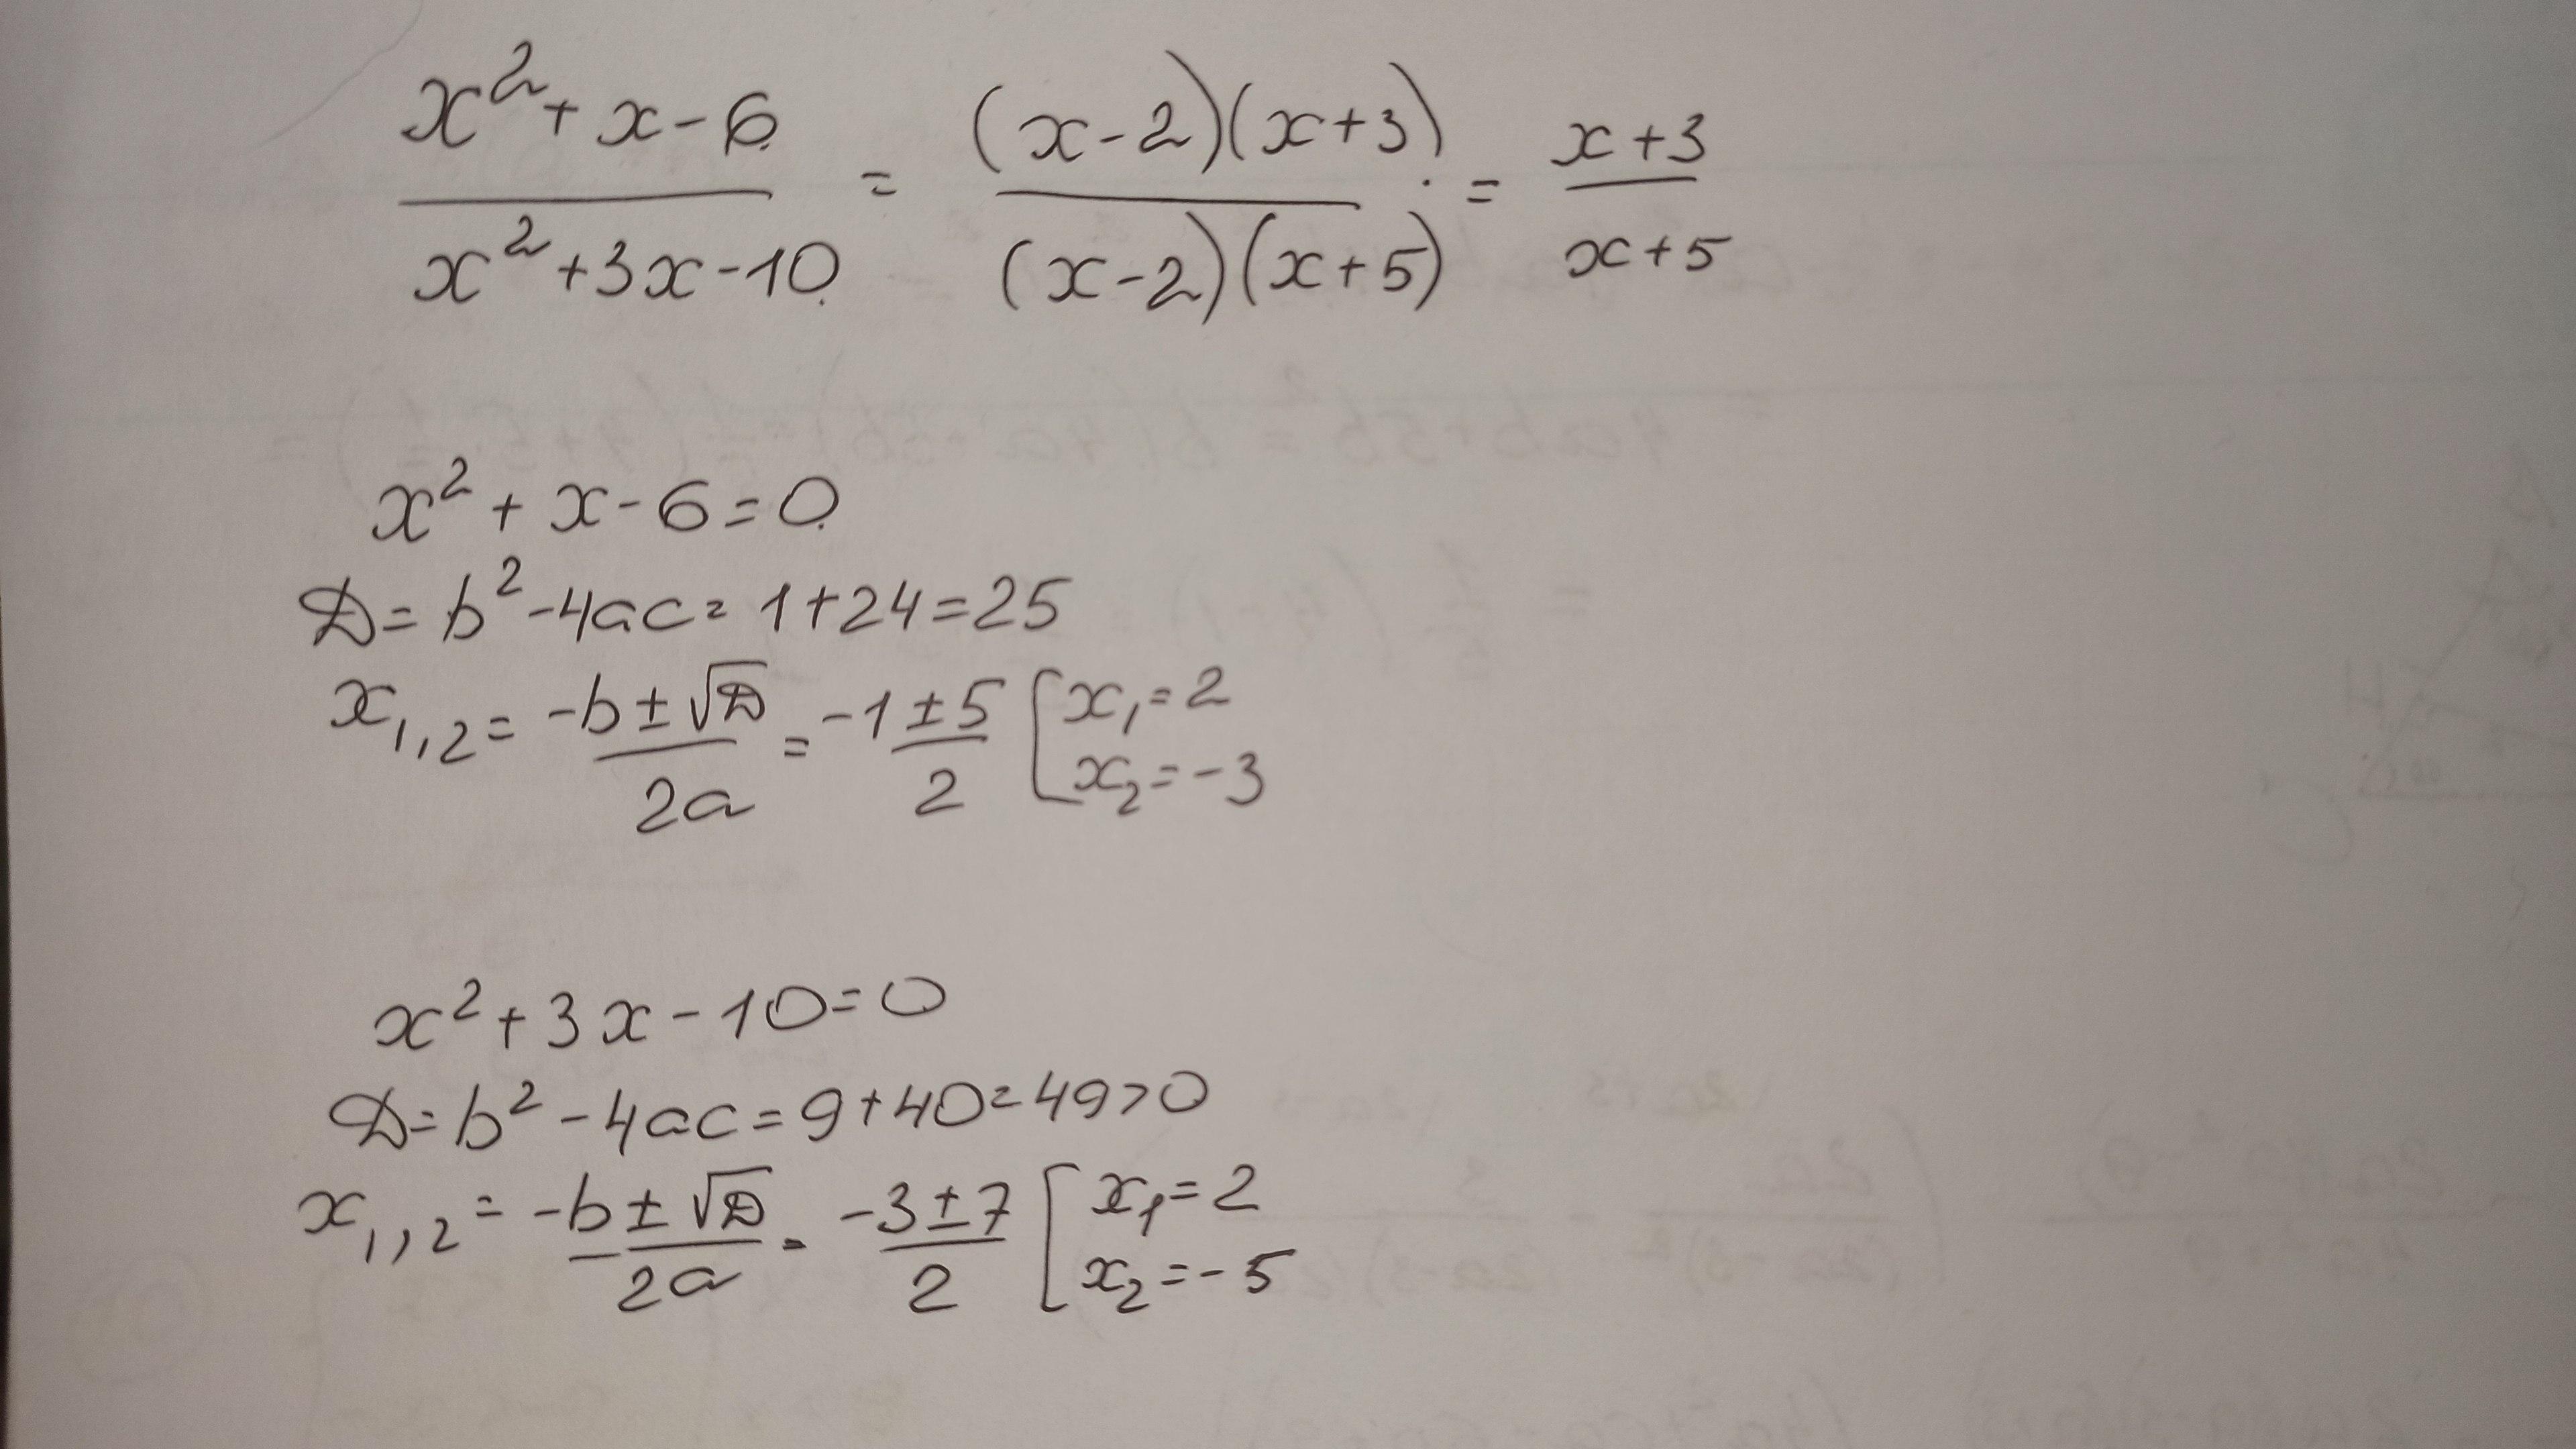 (x² + x - 6)/(x² + 3x - 10) = ((x - 2)(x + 3))/((x - 2)(x + 5)) · = (x + 3)/(x + 5)
x² + x - 6 = 0
D = b² - 4ac = 1 + 24 = 25
x₁,₂ = (-b ± √D)/(2a) = (-1 ± 5)/2 [ x₁ = 2
x₂ = -3
x² + 3x - 10 = 0
D = b² - 4ac = 9 + 40 = 49 > 0
x₁,₂ = (-b ± √D)/(2a) = (-3 ± 7)/2 [ x₁ = 2
x₂ = -5